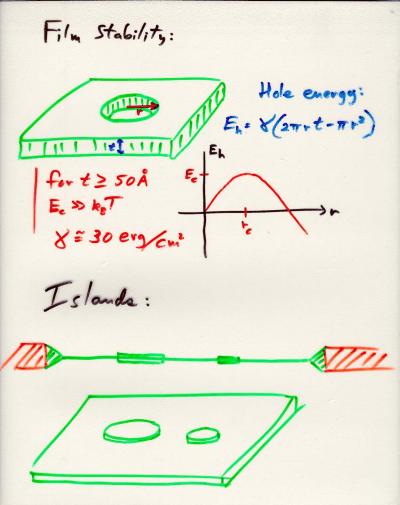 Film Stability:
r
t
Hole energy:
Eₕ = γ(2πrt - πr²)
for t ≥ 50Å
E꜀ ≫ k_BT
γ ≅ 30 erg/cm²
Eₕ
E꜀
r꜀
r
Islands: